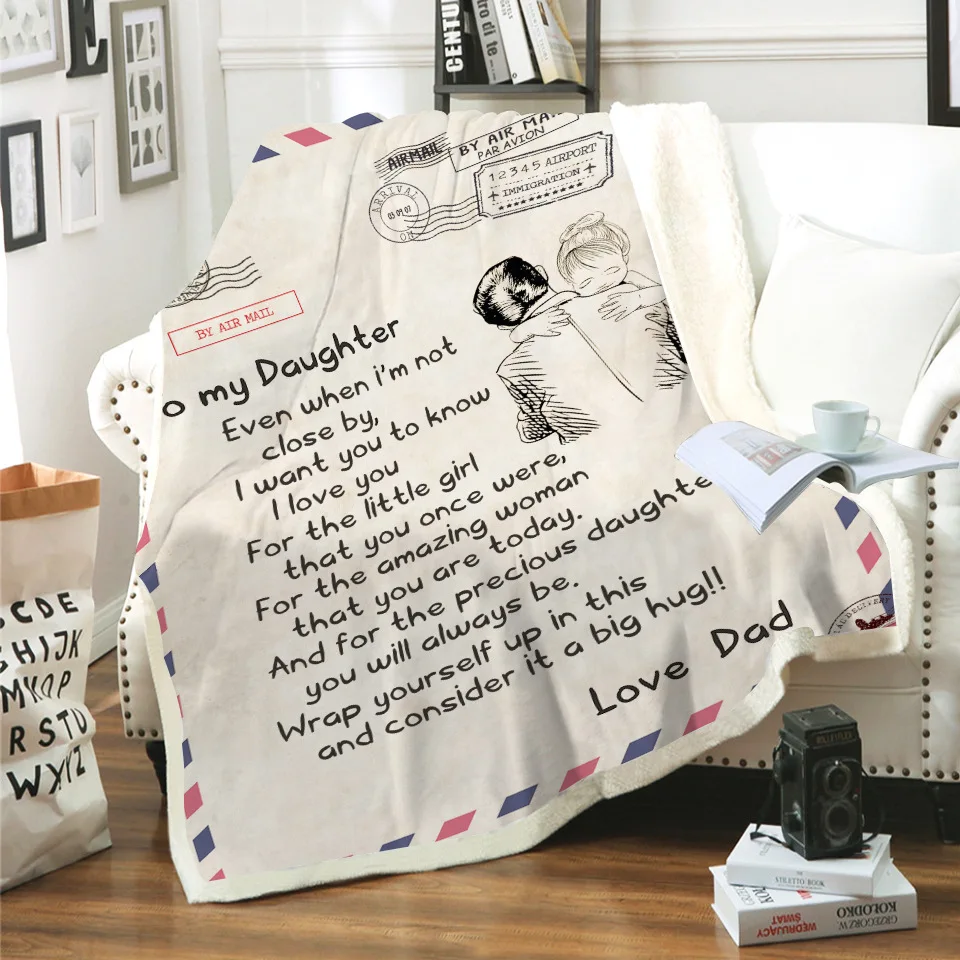 E
CENTU
AIRMAIL
BY AIR MA
PAR AVION
12345 AIRPORT
IMMIGRATION
ARRIVAL
BY AIR MAIL
o my Daughter
Even when i'm not
close by,
I want you to know
I love you
For the little girl
that you once were,
For the amazing woman
that you are today.
And for the precious daughte
you will always be.
Wrap yourself up in this
and consider it a big hug!!
Love Dad
CDE
GHIJK
MNOP
RSTU
WXYZ
STILETTO BOOK
GRZEGORZ W.
KOŁODKO
WĘDRUJĄCY
ŚWIAT